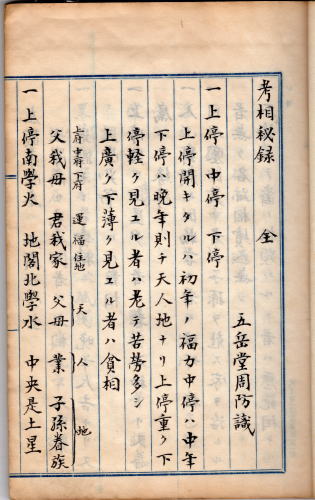 考相秘録　全
五岳堂周防識
一上停 中停 下停
上停開キタルハ初年ノ福力中停ハ中年
下停ハ晩年則チ天人地ナリ上停重ク下
停軽ク見エル者ハ老テ苦労多シ
上廣ク下薄ク見エル者ハ貧相
上府中府下府　運 福 住地　天　人　地
父我母　君我家　父母　業　子孫眷族
一上停南學火　地閣北學水　中央是土星